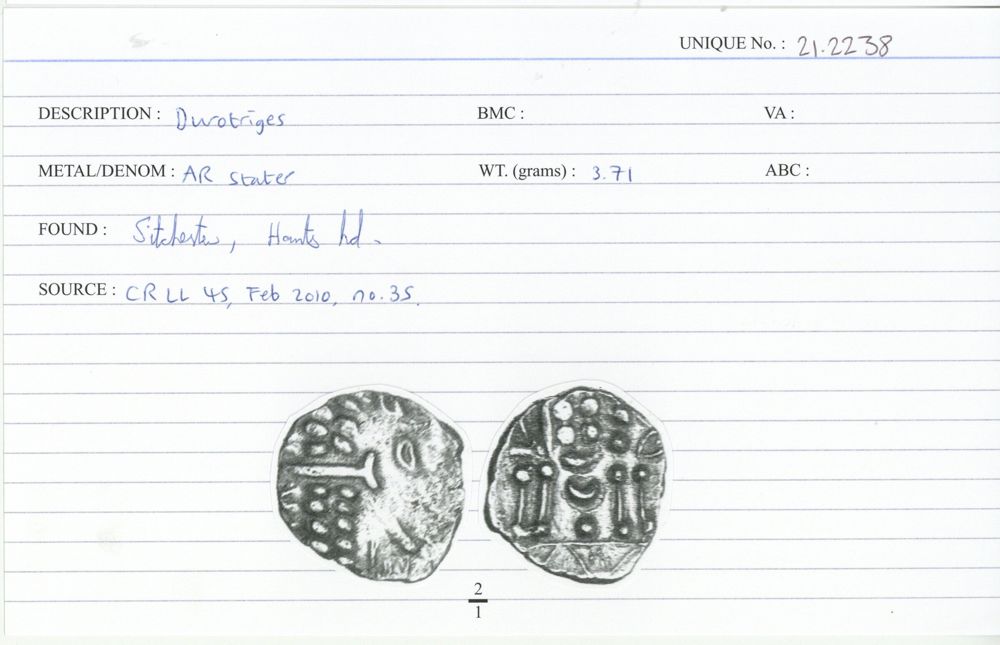 UNIQUE No. : 21.2238
DESCRIPTION : Durotriges BMC : VA :
METAL/DENOM : AR stater WT. (grams) : 3.71 ABC :
FOUND : Silchester, Hants hd.
SOURCE : CR LL 45, Feb 2010, no. 35.
2
1